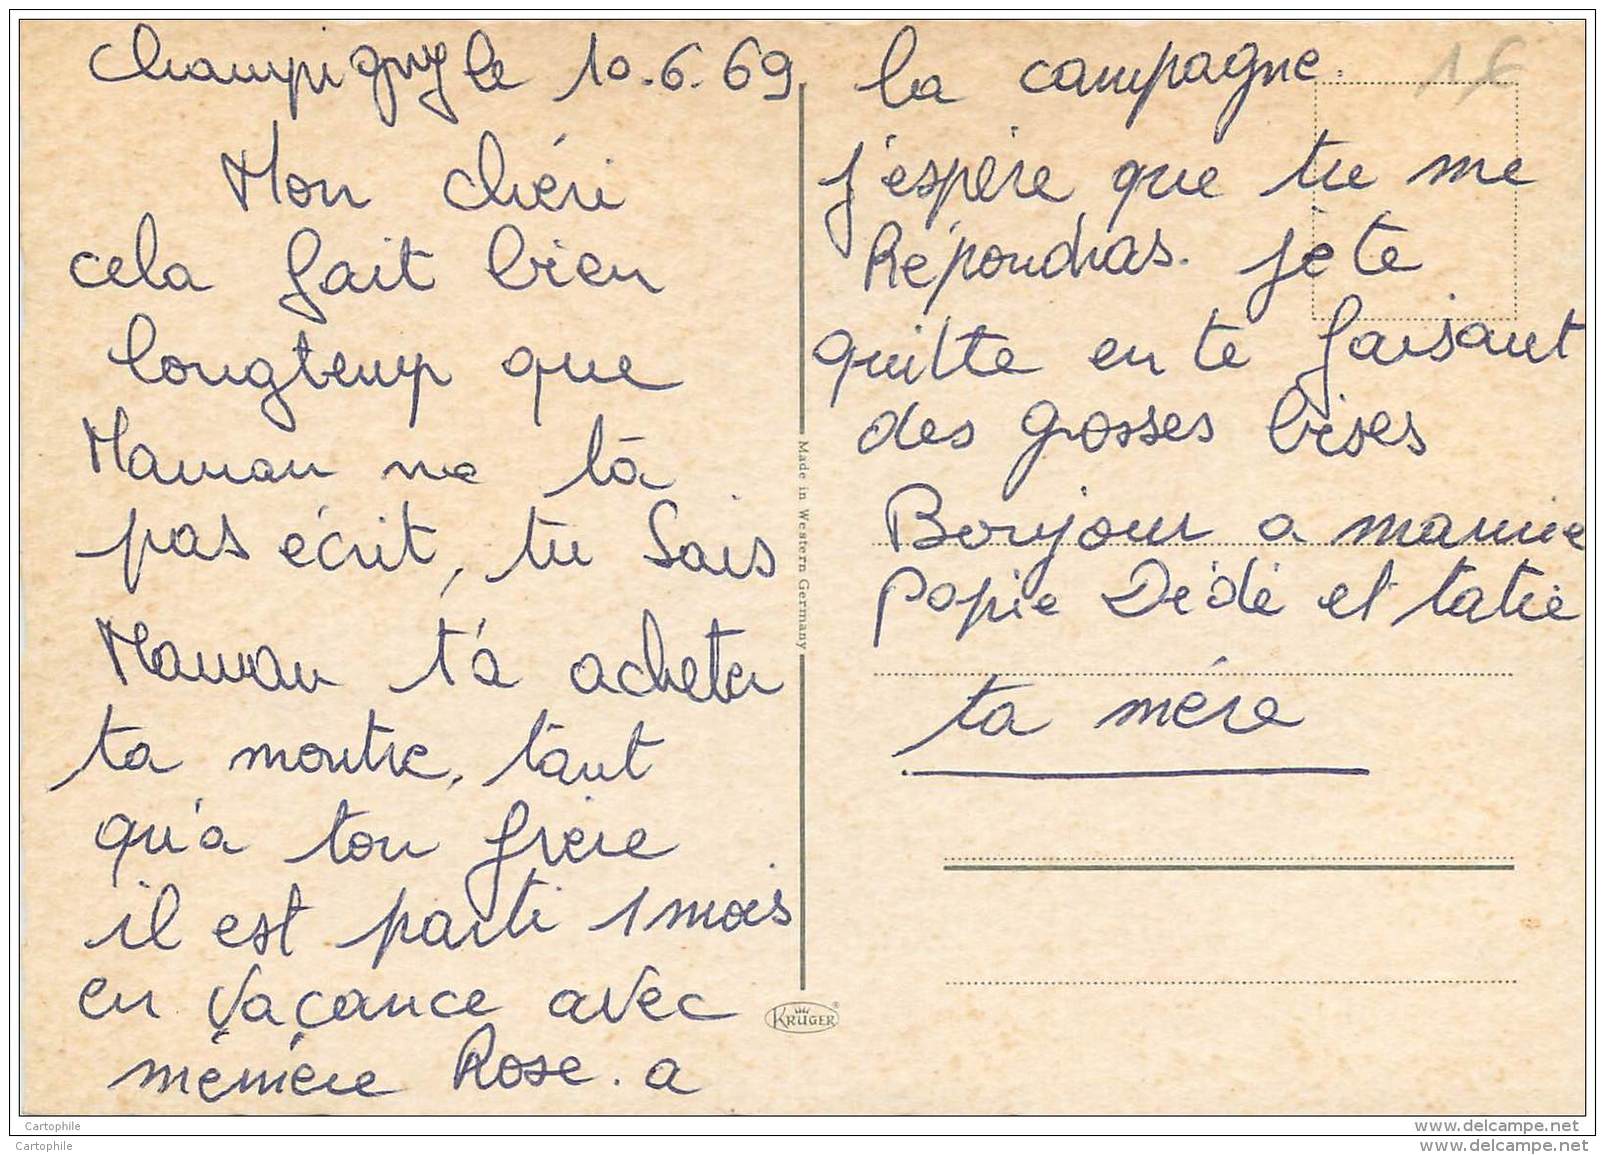 Champigny le 10.6.69
Mon chéri
cela fait bien
longtemp que
Maman ne tà
pas écrit, tu Sais
Maman t'à acheter
ta montre, tant
qu'à ton frère
il est parti 1 mois
en Vacance avec
mémère Rose. a
la campagne.
j'espère que tu me
Répondras. je te
quitte en te faisant
des grosses bises
Bonjour a mamie
papie Dédé et tatie
ta mère
16
Made in Western Germany
KRÜGER
®
Cartophile
Cartophile
www.delcampe.net
www.delcampe.net